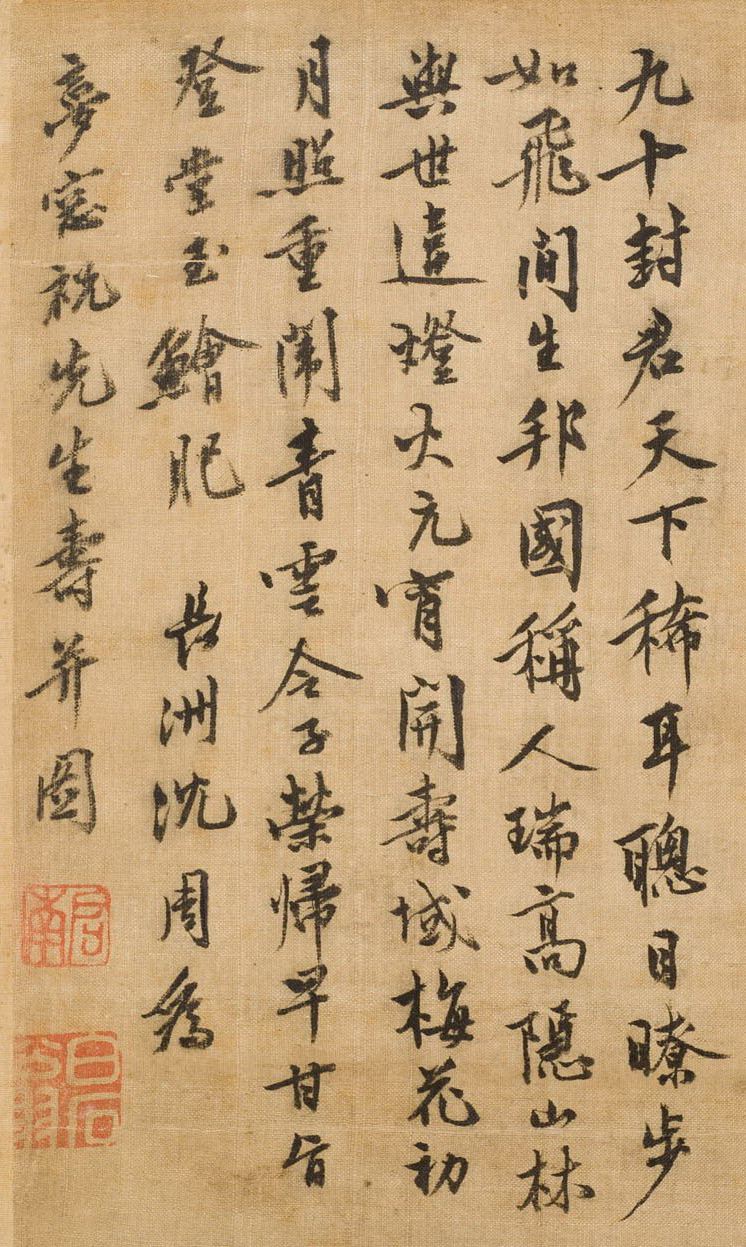 九十封君天下稀耳聰目瞭步
如飛間生邦國稱人瑞高隱山林
與世違燈火元宵開壽域梅花初
月照重闈青雲令子榮歸早甘旨
登堂玉鱠肥 長洲沈周為
夢窓祝先生壽并圖